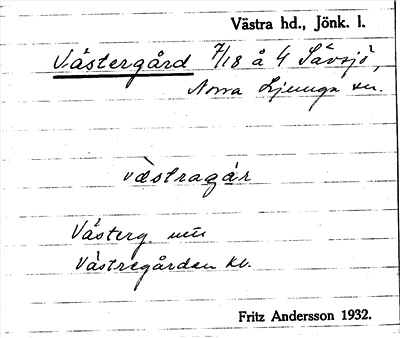 Västra hd., Jönk. l.
Västergård 7/18 å 4 Sävsjö,
Norra Ljunga sn.
västragår
Västerg. mtl
Västregården kb.
Fritz Andersson 1932.